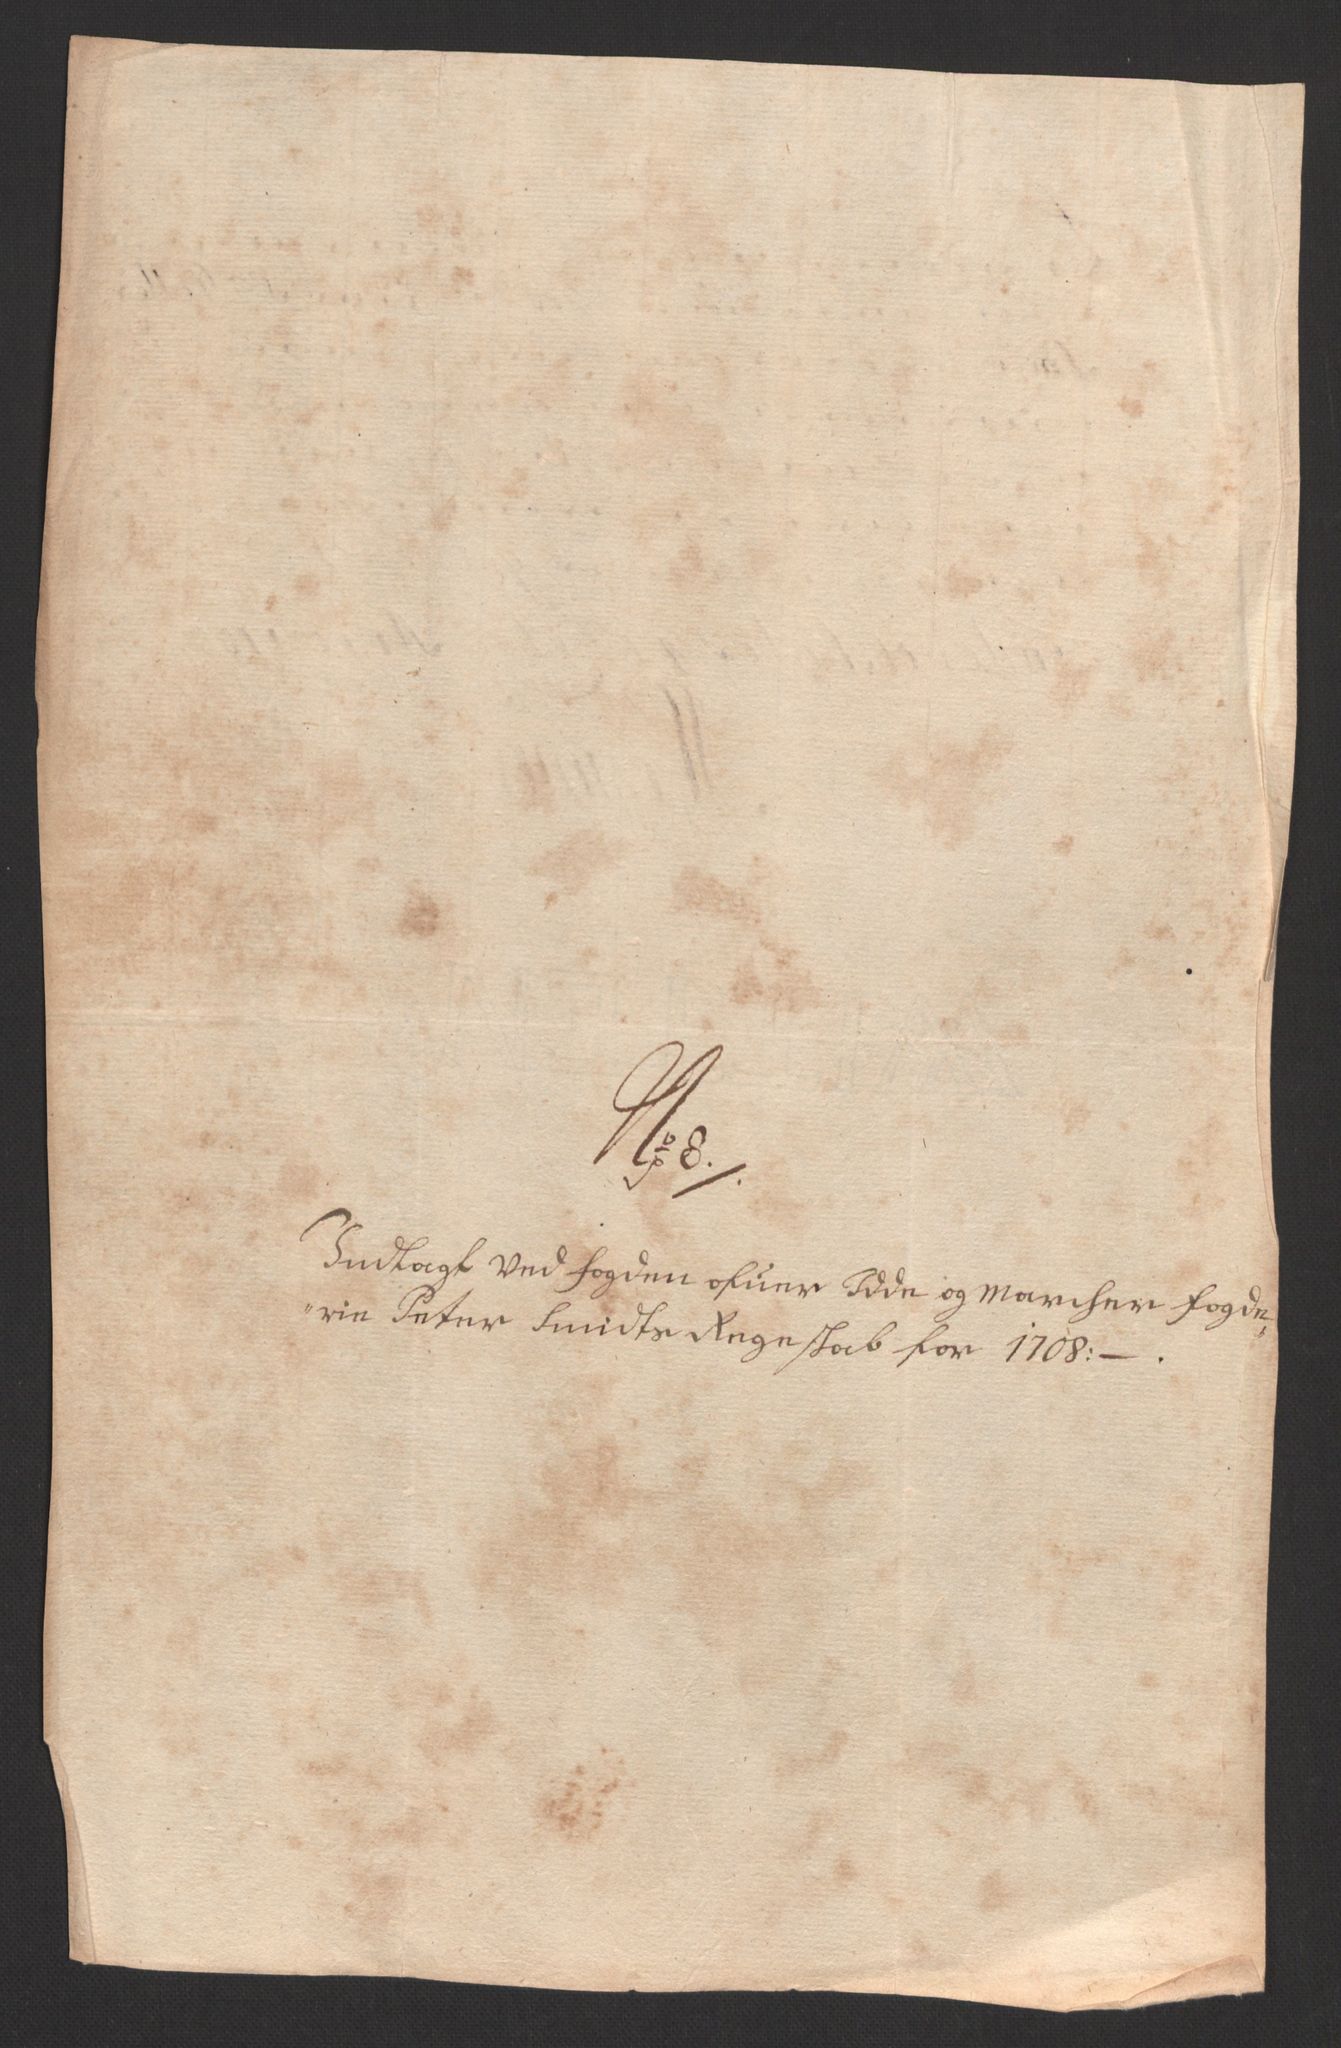 No 8.
Indlagt Ved fogden ofuer Idde og Marcher fogde„
„rie Peter Smidts Regnskab for 1708:—.